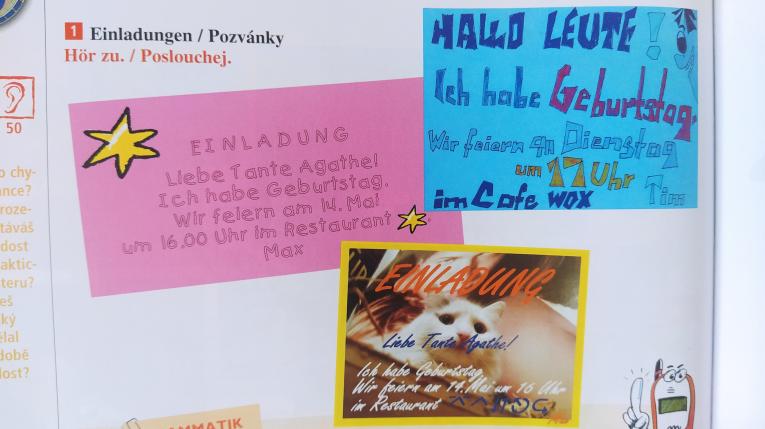 1 Einladungen / Pozvánky
Hör zu. / Poslouchej.
50
o chy-
ance?
roze-
táváš
dost
aktic-
teru?
eš
ký
ělal
době
dost?
EINLADUNG
Liebe Tante Agathe!
Ich habe Geburtstag.
Wir feiern am 14. Mai
um 16.00 Uhr im Restaurant
Max
HALLO LEUTE!
Ich habe Geburtstag.
Wir feiern am Dienstag
um 17 Uhr
im Cafe WOX Tim
EINLADUNG
Liebe Tante Agathe!
Ich habe Geburtstag.
Wir feiern am 14. Mai um 16 Uhr
im Restaurant
AMMATIK